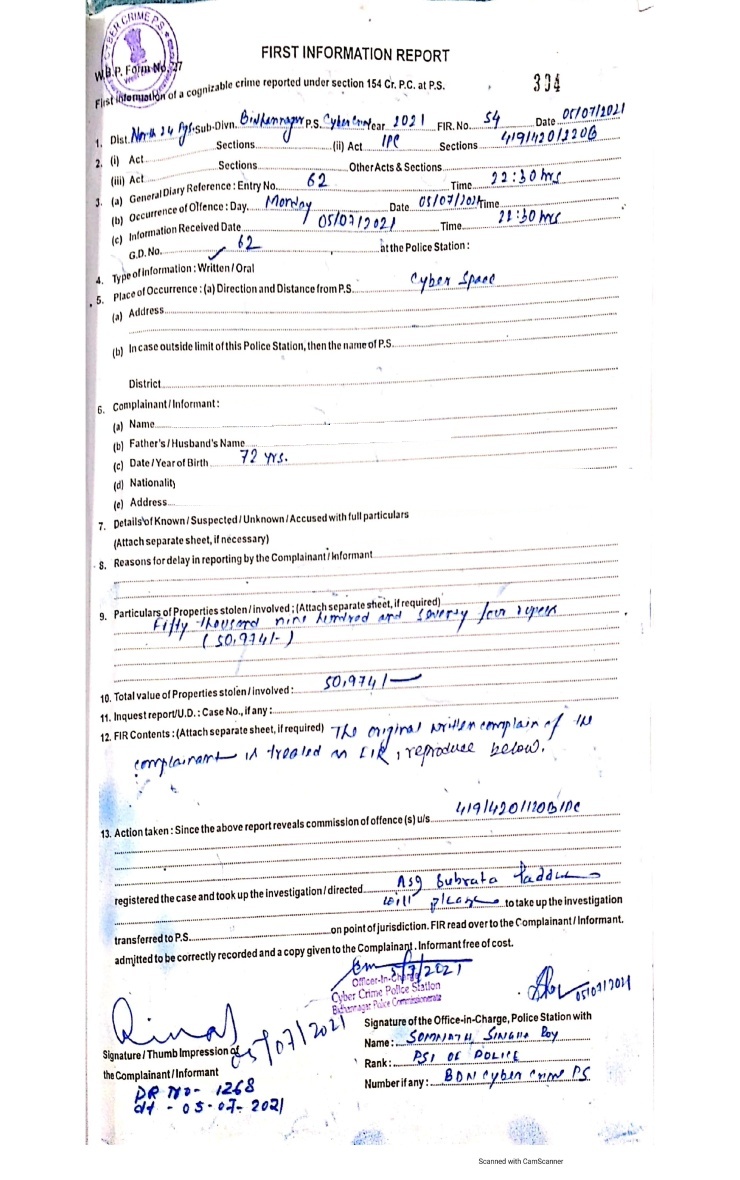 CYBER CRIME P.S.
FIRST INFORMATION REPORT
W.B.P. Form No. 27
First information of a cognizable crime reported under section 154 Cr. P.C. at P.S. 334
1. Dist. North 24 Pgs. Sub-Divn. Bidhannagar P.S. Cyber Crime Year 2021 FIR. No. 54 Date 05/07/2021
2. (i) Act Sections (ii) Act IPC Sections 419/420/120B
(iii) Act Sections Other Acts & Sections
3. (a) General Diary Reference : Entry No. 62 Time 22:30 hrs
(b) Occurrence of Offence : Day. Monday Date 05/07/2021 Time
(c) Information Received Date 05/07/2021 Time 22:30 hrs
G.D. No. 62 at the Police Station :
4. Type of Information : Written / Oral
5. Place of Occurrence : (a) Direction and Distance from P.S. Cyber Space
(a) Address
(b) In case outside limit of this Police Station, then the name of P.S.
District
6. Complainant / Informant :
(a) Name
(b) Father's / Husband's Name
(c) Date / Year of Birth 72 yrs.
(d) Nationality
(e) Address
7. Details of Known / Suspected / Unknown / Accused with full particulars
(Attach separate sheet, if necessary)
8. Reasons for delay in reporting by the Complainant / Informant
9. Particulars of Properties stolen / involved ; (Attach separate sheet, if required)
Fifty thousand nine hundred and seventy four rupees
(50,974/-)
10. Total value of Properties stolen / involved : 50,974/-
11. Inquest report/U.D. : Case No., if any :
12. FIR Contents : (Attach separate sheet, if required) The original written complain of the
complainant is treated as FIR, reproduce below.
13. Action taken : Since the above report reveals commission of offence (s) u/s. 419/420/120B IPC
registered the case and took up the investigation / directed ASI Subrata
will please to take up the investigation
transferred to P.S. on point of jurisdiction. FIR read over to the Complainant / Informant.
admitted to be correctly recorded and a copy given to the Complainant. Informant free of cost.
5/7/2021
Officer-In-Charge
Cyber Crime Police Station
Bidhannagar Police Commissionerate
05/07/2021
05/07/2021
Signature / Thumb Impression of
the Complainant / Informant
DR NO- 1268
dt - 05-07-2021
Signature of the Office-in-Charge, Police Station with
Name : SOMNATH SINGHA ROY
Rank : PSI OF POLICE
Number if any : BDN Cyber Crime PS
Scanned with CamScanner